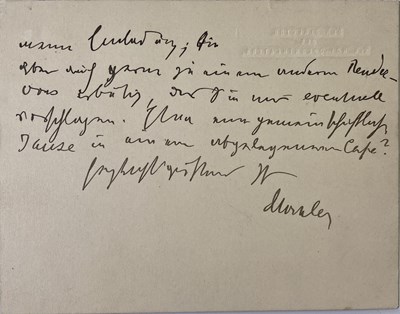 meine Einladung; bin
aber auch gerne zu einem anderen Rendez-
vous erbötig, das Sie mir eventuell
vorschlagen. Etwa eine gemeinschaftliche
Jause in einem abgelegenen Café?
Ihr